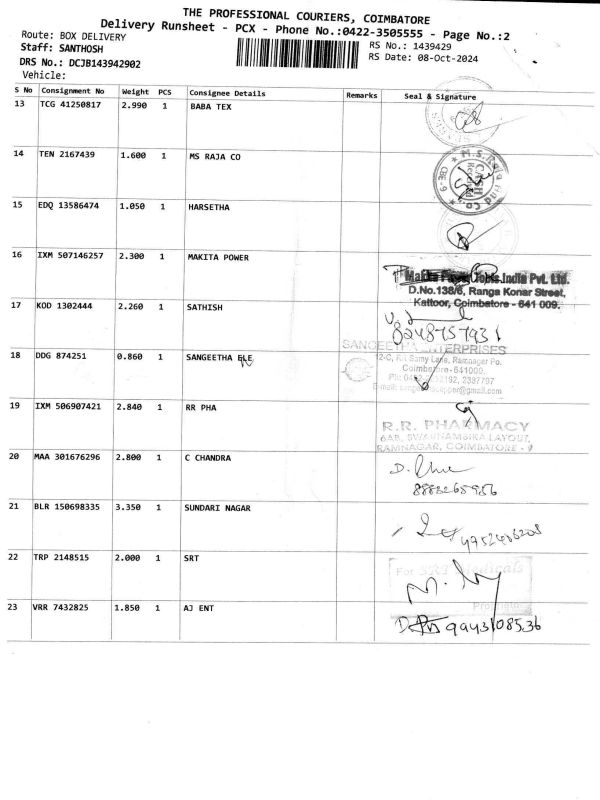 THE PROFESSIONAL COURIERS, COIMBATORE
Delivery Runsheet - PCX - Phone No.:0422-3505555 - Page No.:2
Route: BOX DELIVERY
Staff: SANTHOSH
DRS No.: DCJB143942902
Vehicle:
RS No.: 1439429
RS Date: 08-Oct-2024
S No Consignment No Weight PCS Consignee Details Remarks Seal & Signature
13 TCG 41250817 2.990 1 BABA TEX
14 TEN 2167439 1.600 1 MS RAJA CO
M.S. Raja And Co
CASH
CBE-9
15 EDQ 13586474 1.050 1 HARSETHA
16 IXM 507146257 2.300 1 MAKITA POWER
Makita Power Tools India Pvt. Ltd.
D.No.138/6, Ranga Konar Street,
Kattoor, Coimbatore - 641 009.
17 KOD 1302444 2.260 1 SATHISH
8248757931
18 DDG 874251 0.860 1 SANGEETHA ELE
SANGEETHA ENTERPRISES
Samy Lane, Ramnagar Po.
Coimbatore-641009.
2192, 2337797
19 IXM 506907421 2.840 1 RR PHA
R.R. PHARMACY
6AB, SWARNAMBIKA LAYOUT,
RAMNAGAR, COIMBATORE - 9
20 MAA 301676296 2.800 1 C CHANDRA
21 BLR 150698335 3.350 1 SUNDARI NAGAR
22 TRP 2148515 2.000 1 SRT
For SRT Medicals
23 VRR 7432825 1.850 1 AJ ENT
9943108536